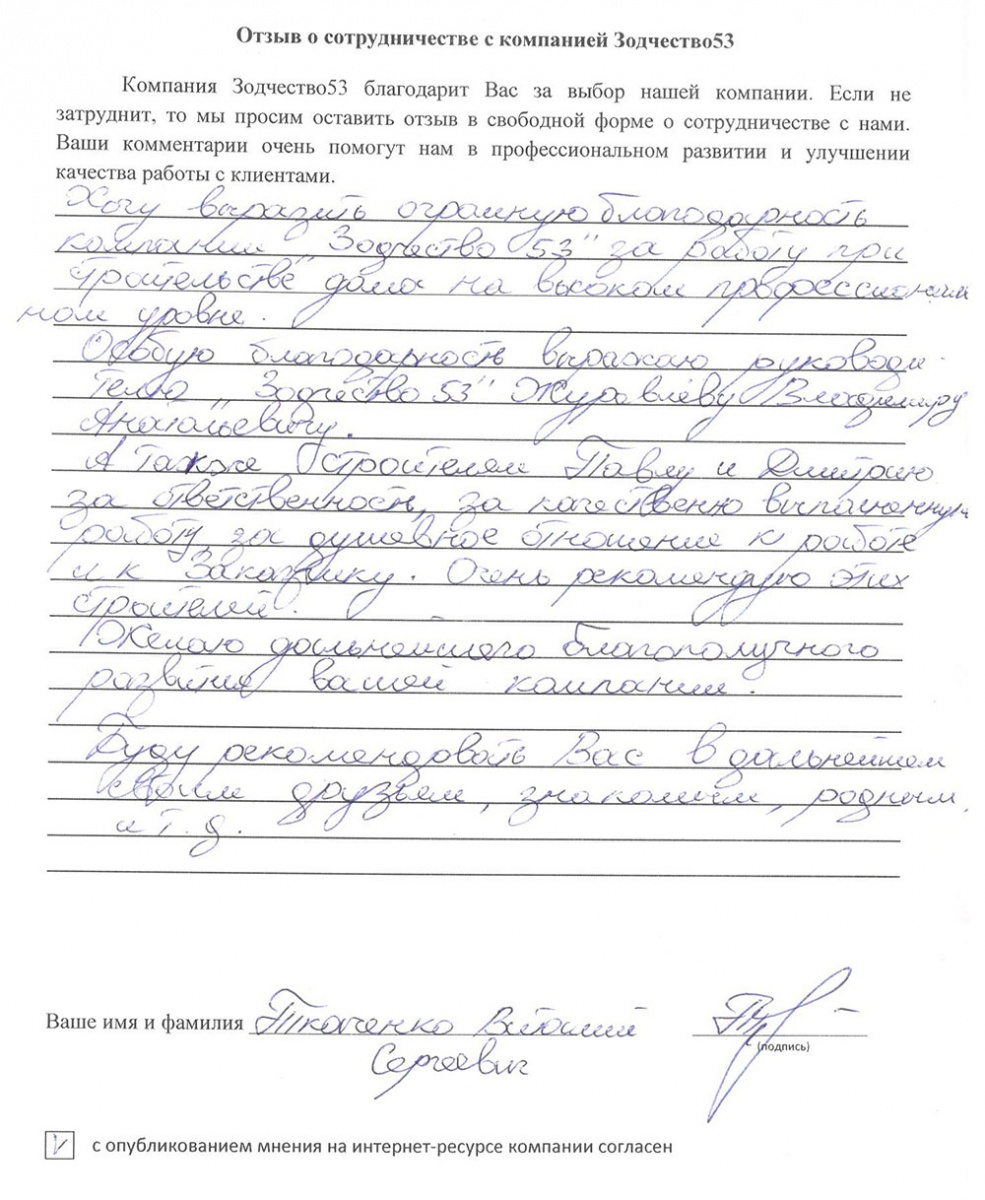 Отзыв о сотрудничестве с компанией Зодчество53
Компания Зодчество53 благодарит Вас за выбор нашей компании. Если не
затруднит, то мы просим оставить отзыв в свободной форме о сотрудничестве с нами.
Ваши комментарии очень помогут нам в профессиональном развитии и улучшении
качества работы с клиентами.
Хочу выразить огромную благодарность
компании "Зодчество 53" за работу при
строительстве дома на высоком профессиональ
ном уровне.
Особую благодарность выражаю руководи-
телю "Зодчество 53" Журавлёву Владимиру
Анатольевичу.
А также строителям Павлу и Дмитрию
за ответственность, за качественно выполненную
работу за душевное отношение к работе
и к Заказчику. Очень рекомендую этих
строителей.
Желаю дальнейшего благополучного
развития вашей компании.
Буду рекомендовать Вас в дальнейшем
своим друзьям, знакомым, родным,
и т.д.
Ваше имя и фамилия Ткаченко Виталий
Сергеевич
(подпись)
с опубликованием мнения на интернет-ресурсе компании согласен